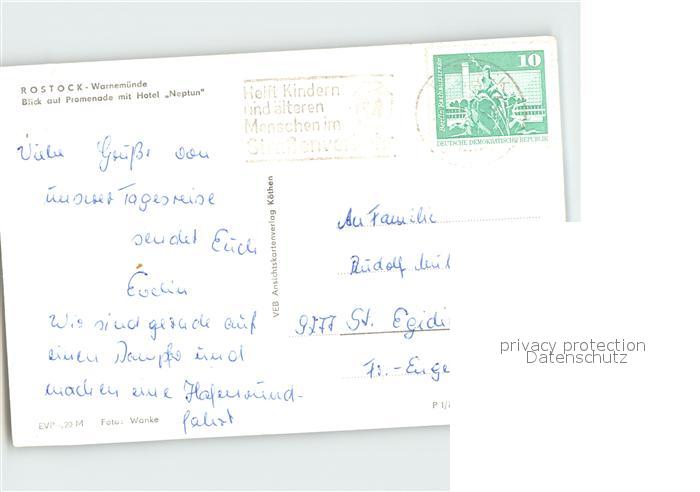 ROSTOCK - Warnemünde
Blick auf Promenade mit Hotel „Neptun"
Helft Kindern
und älteren
Menschen im
Straßenver
10
Berlin, Rathausstraße
DEUTSCHE DEMOKRATISCHE REPUBLIK
Viele Grüße von
unserer Tagesreise
sendet Euch
Evelin
Wir sind gerade auf
einen Dampfer und
machen eine Hafenrund-
fahrt
VEB Ansichtskartenverlag Köthen
An Familie
Rudolf
9277 St. Egidi
Fr.-Enge
EVP -,20 M Foto: Wanke
P 1/
privacy protection
Datenschutz